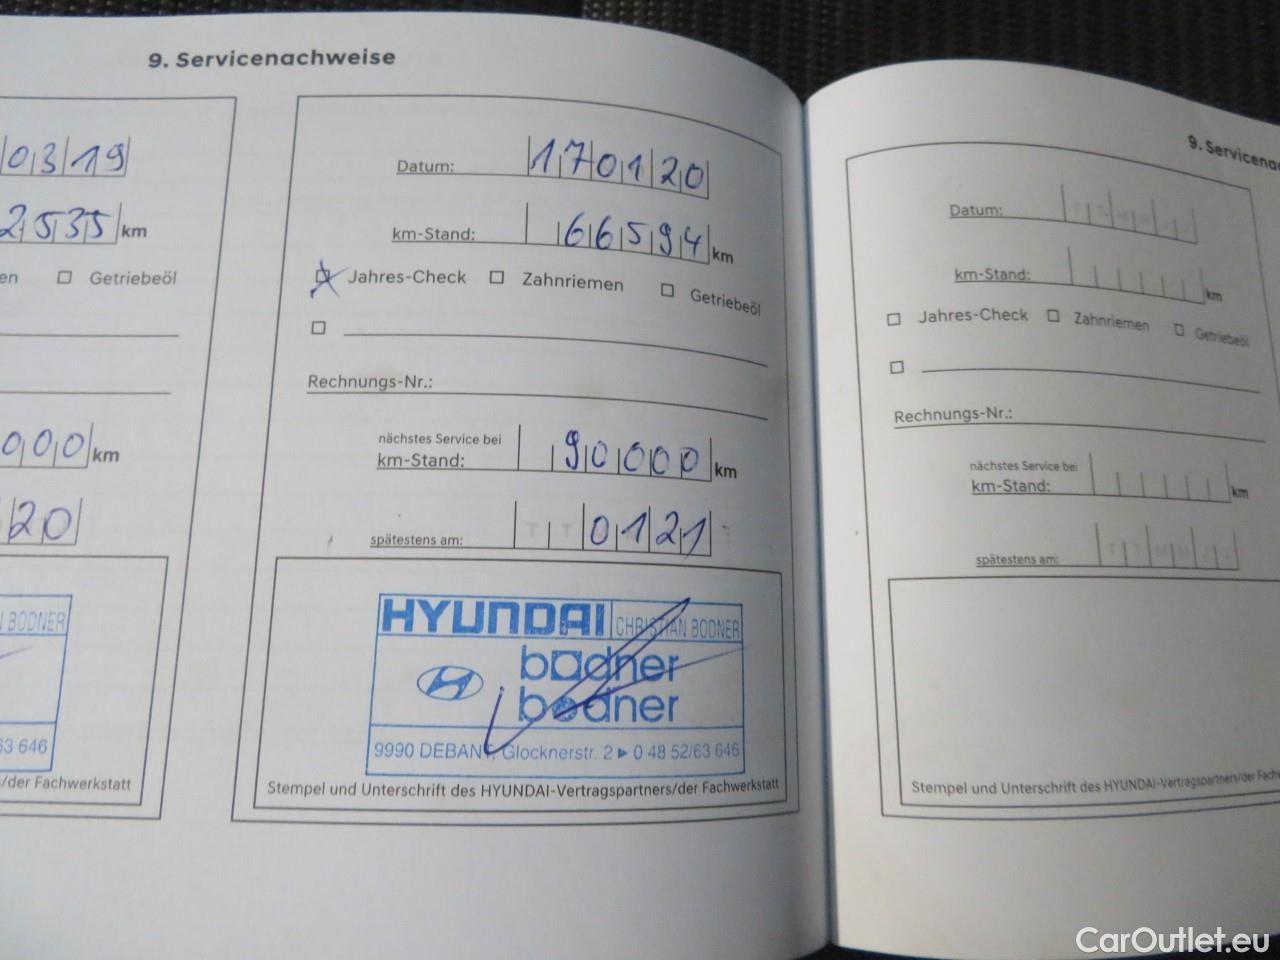 9. Servicenachweise
0319
2535 km
en ☐ Getriebeöl
000 km
20
BODNER
63 646
/der Fachwerkstatt
Datum: 170120
km-Stand: 66594 km
☒ Jahres-Check ☐ Zahnriemen ☐ Getriebeöl
☐
Rechnungs-Nr.:
nächstes Service bei
km-Stand: 90000 km
spätestens am: T T 0121
HYUNDAI CHRISTIAN BODNER
bodner
bodner
9990 DEBANT, Glocknerstr. 2 ▸ 0 48 52/63 646
Stempel und Unterschrift des HYUNDAI-Vertragspartners/der Fachwerkstatt
9. Servicena
Datum: T T M M J J
km-Stand: km
☐ Jahres-Check ☐ Zahnriemen ☐ Getriebeöl
☐
Rechnungs-Nr.:
nächstes Service bei
km-Stand: km
spätestens am: T T M M J J
Stempel und Unterschrift des HYUNDAI-Vertragspartners/der Fachw
CarOutlet.eu